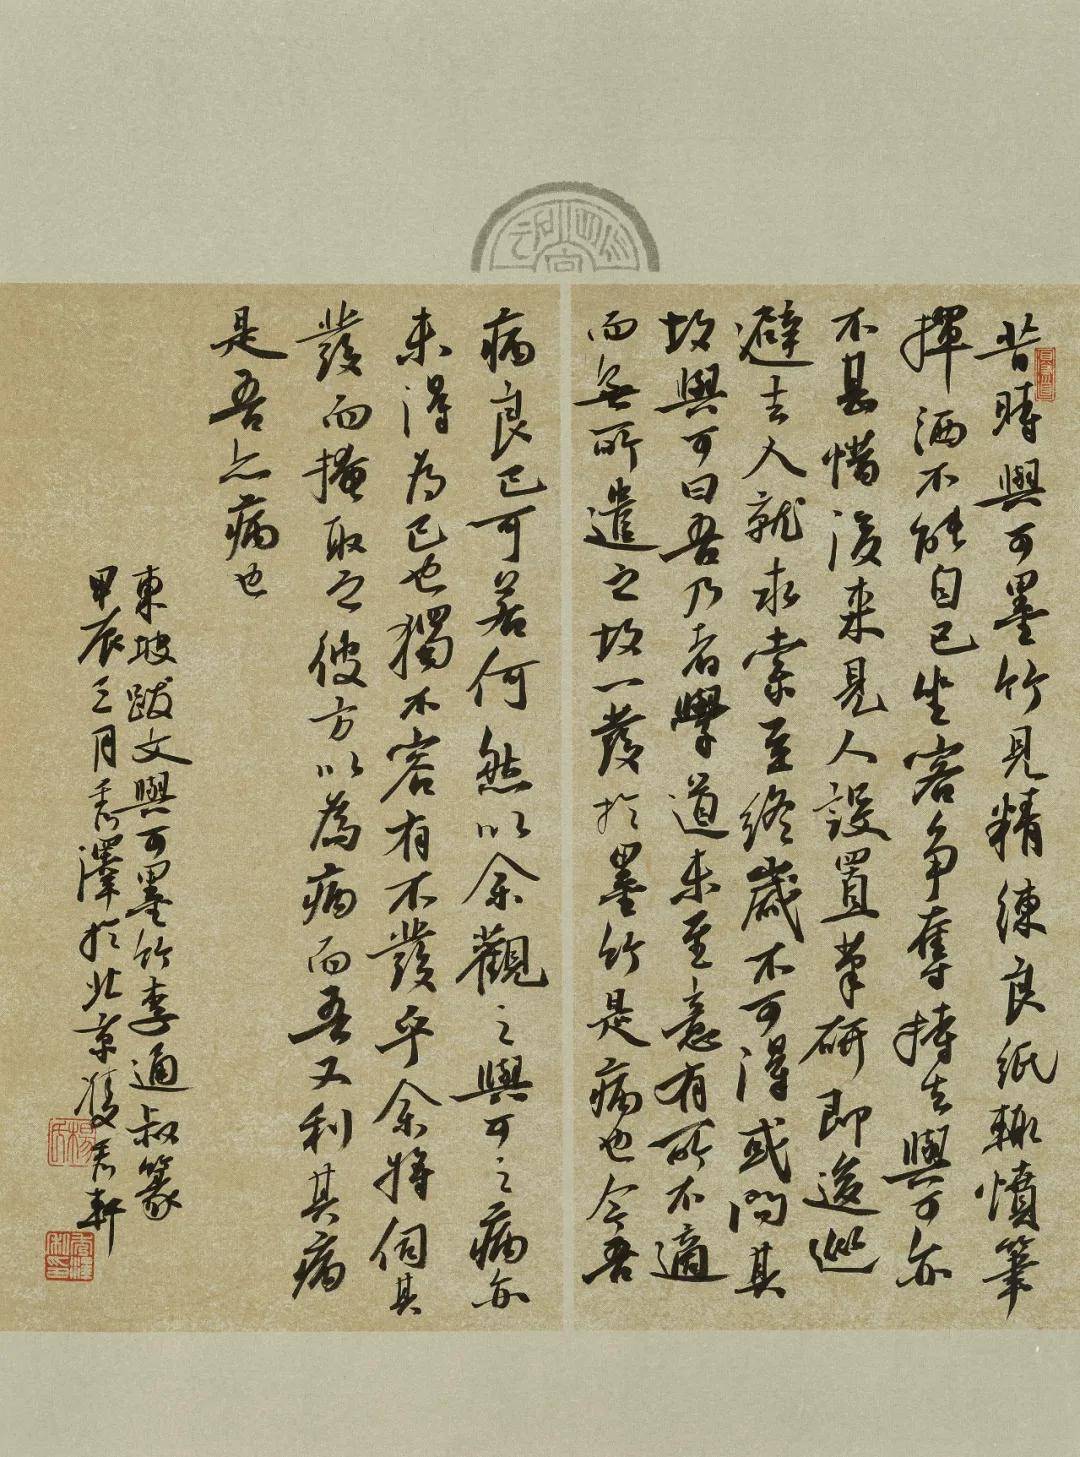 昔時與可墨竹見精練良紙輒憤筆
揮洒不能自已坐客爭奪持去與可亦
不甚惜後來見人設置筆研即逡巡
避去人就求索至終歲不可得或問其
故與可曰吾乃者學道未至意有所不適
而無所遣之故一發於墨竹是病也今吾
病良已可若何然以余觀之與可之病亦
未得為已也獨不容有不發乎余將伺其
發而掩取之彼方以為病而吾又利其病
是吾亦病也
東坡跋文與可墨竹李通叔篆
甲辰三月秀澤於北京